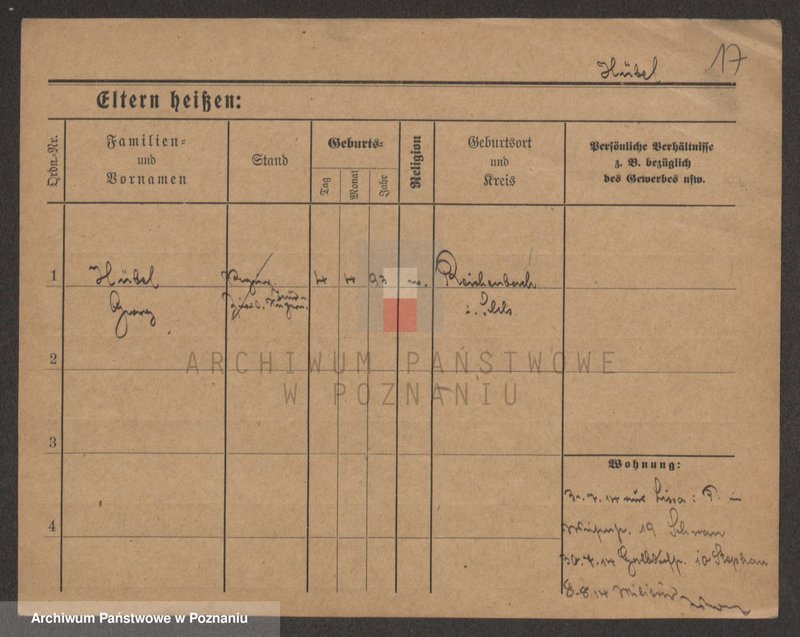 Hübel 17
Eltern heißen:
Ordn.-Nr.
Familien-
und
Vornamen
Stand
Geburts-
Tag
Monat
Jahr
Religion
Geburtsort
und
Kreis
Persönliche Verhältnisse
z. B. bezüglich
des Gewerbes usw.
1
Hübel 4 4 93 Reichenbach
Georg i. Schls.
2
ARCHIWUM PAŃSTWOWE
W POZNANIU
3
Wohnung:
4
aus Lissa:
19
30.4.14
8.8.14 Militär
Archiwum Państwowe w Poznaniu